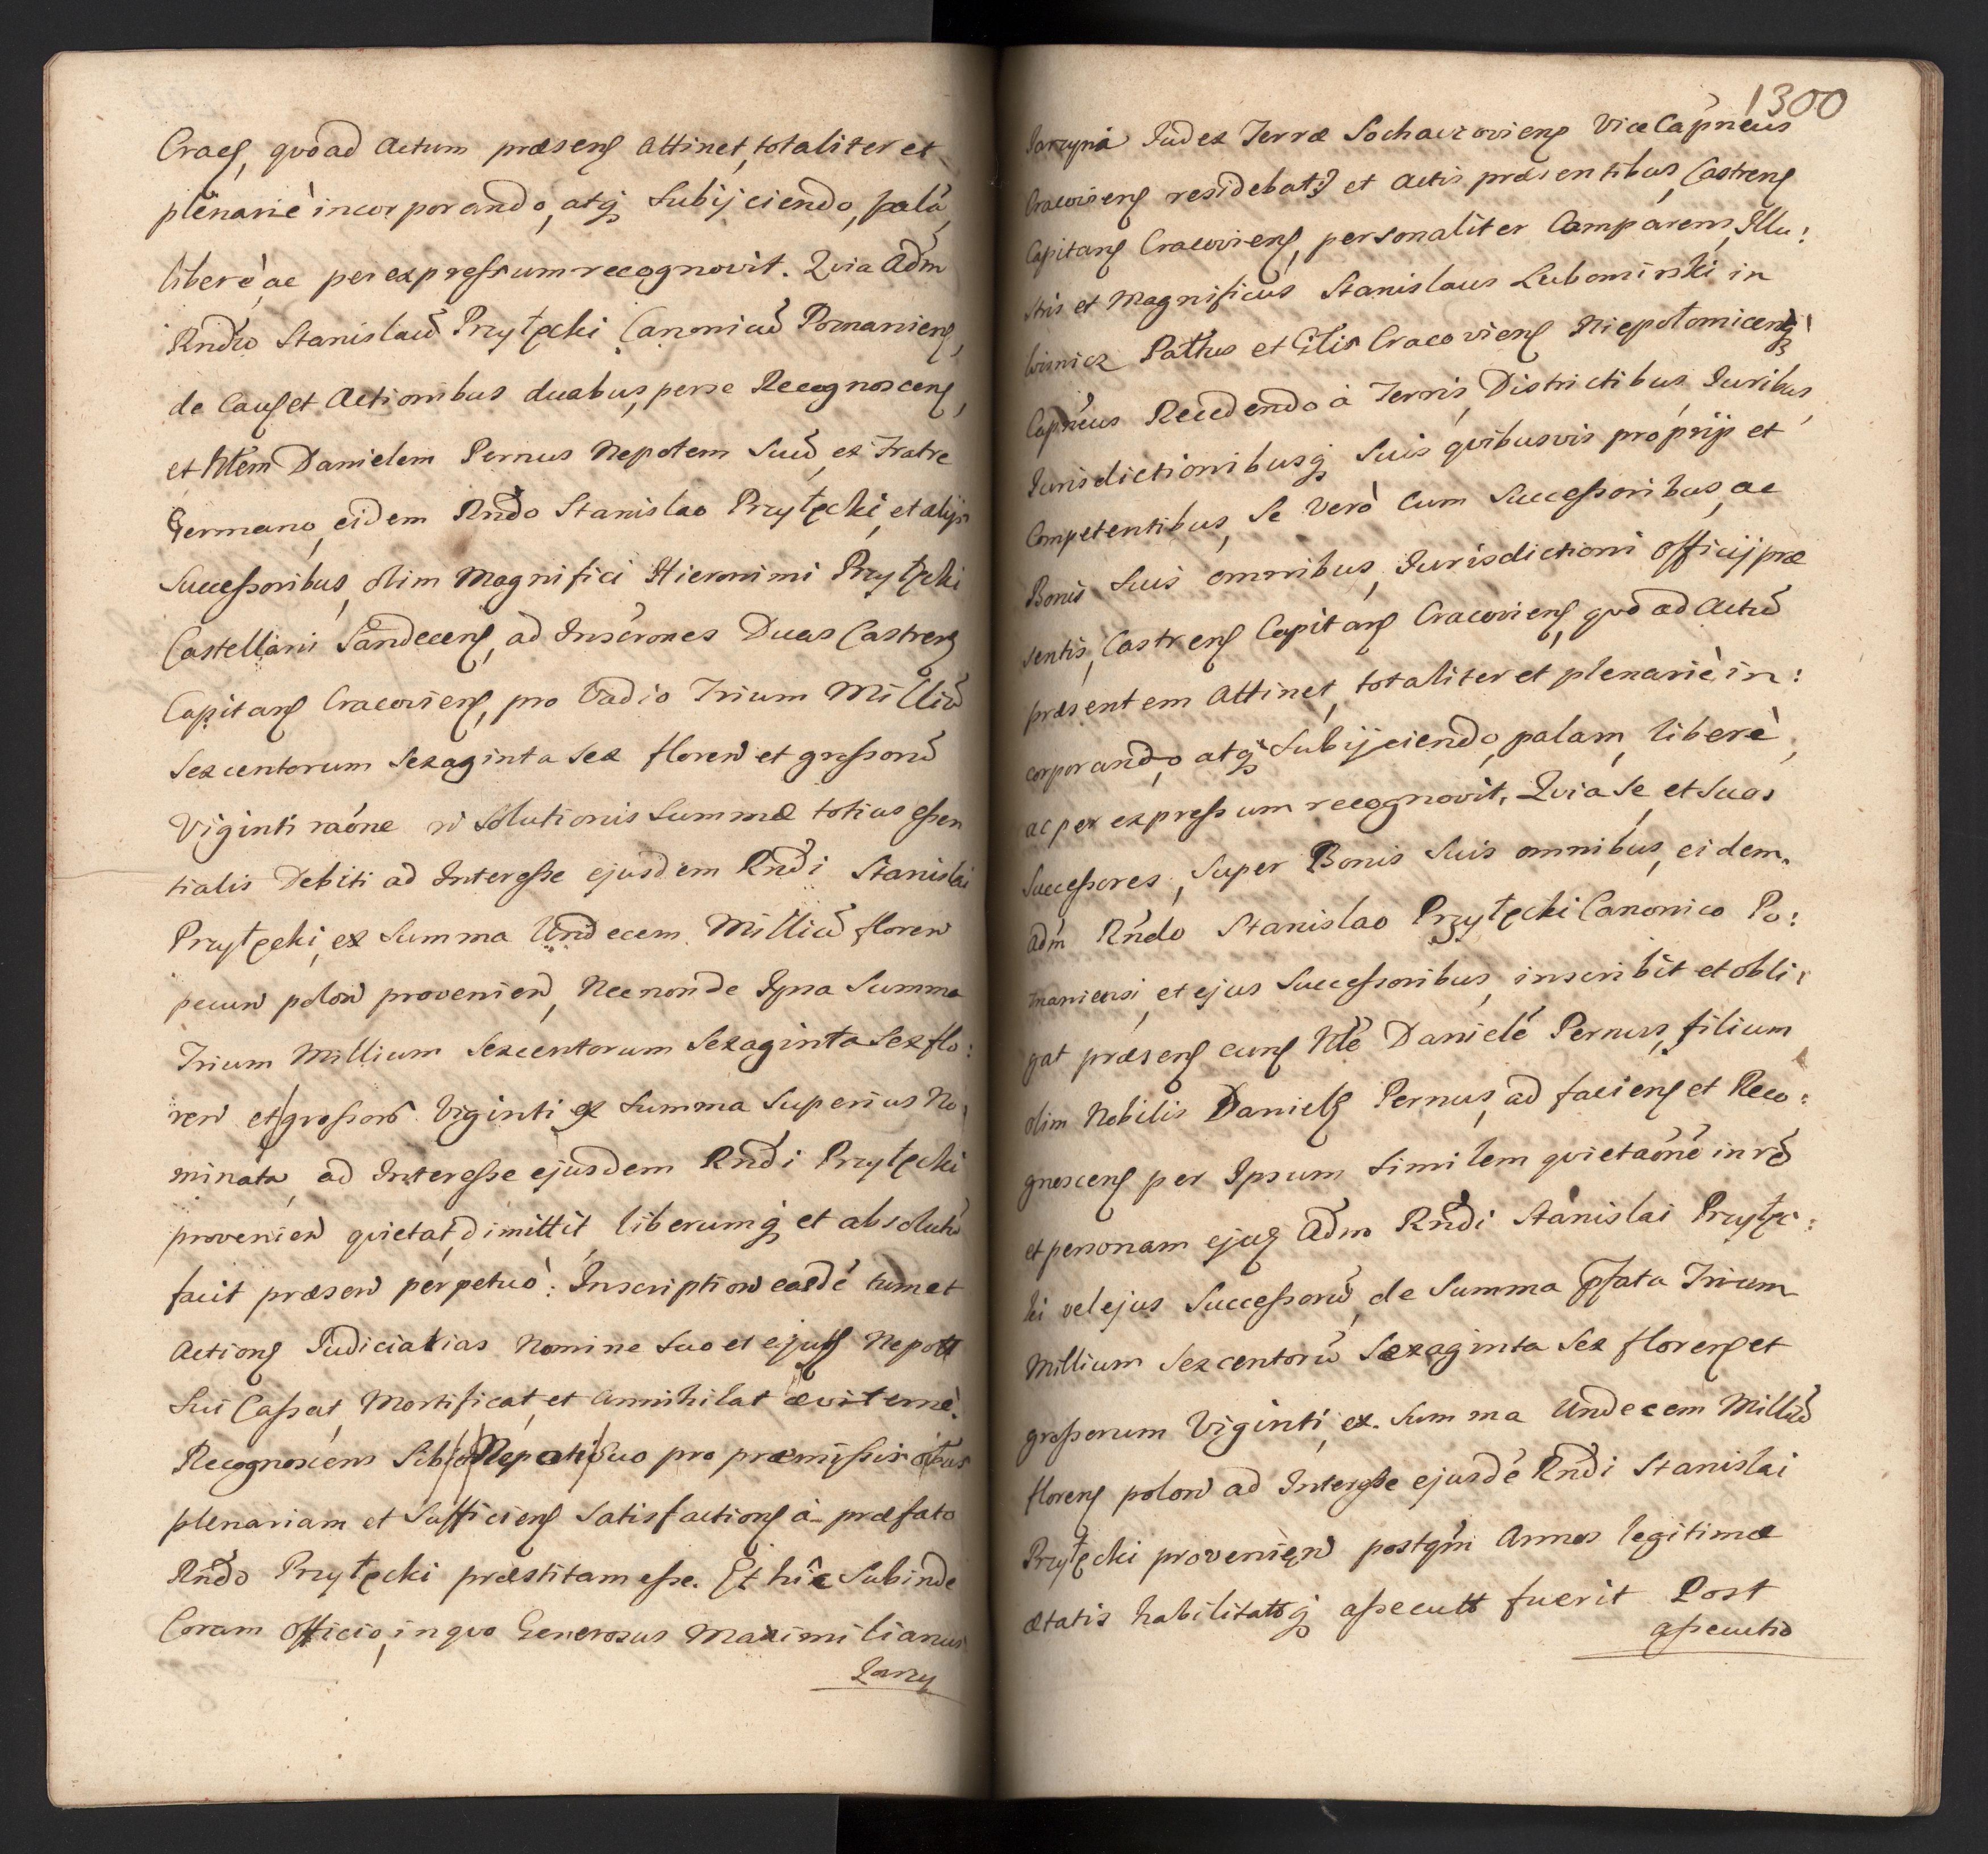 Cracę, quoad Actum præsenę Attinet, totaliter et
plenariè incorporando, atq́ subijciendo, palā,
liberè, ac per expressum recognovit. Quia Adm̃
Rnd̃ũ Stanislaũ Przyłęcki Canonicũ Poznanienę,
de Cauę et Actionibus duabus, per se Recognoscenę,
et Nl̃em Danielem Pernus Nepotem Suũ, ex Fratre
Germano, eidem Rnd̃o Stanislao Przyłęcki, et alijs
Successoribus, olim Magnifici Hieronimi Przyłęcki
Castellani Sandecenę, ad Inscr̃ones Duas Castrenę
Capitanę Cracovienę, pro Vadio Trium Milliũ
Sexcentorum Sexaginta Sex floren̄ et grossorũ
Viginti raõne n̄ Solutionis Summæ totius essen
tialis Debiti ad Interesse ejusdem Rnd̃i Stanislai
Przyłęcki, ex Summa Undecem Milliũ floren̄
pecun̄ polon̄ provenien̄, Nec non de Ipsa Summa
Trium Millium Sexcentorum Sexaginta Sex flo:
ren̄ et grossorũ Viginti ex Summa Superius No:
minata, ad Interesse ejusdem Rnd̃i Przyłęcki
provenien̄ quietat, dimittit liberumq́ et absolutũ
facit præsen̄ perpetuò: Inscription̄ easdē tum et
Actionę Judiciarias Nomine Suo et ejusdę Nepotę
Sui Cassat, Mortificat, et Annihilat æviternè.
Recognoscens Sibi et Nepoti Suo pro præmissis oĩbus
plenariam et Sufficienę Satisfactionę à præfato
Rnd̃o Przyłęcki præstitam esse. Et hîc Subinde
Coram Officio, in quo Generosus Maximilianus
Jarzy
1300
Jarzyna Judex Terræ Sochaczovienę ViceCapñeus
Cracovienę residebat, et Actis præsentibus, Castrenę
Capitanę Cracovienę, personaliter Comparens, Illu:
stris et Magnificus Stanislaus Lubomirski in
Wisnicz Pal̃tus et Gñlis Cracovienę Niepołomicenęq́
Capñeus Recedendo à Terris, Districtibus, Juribus,
Jurisdictionibusq́ Suis quibusvis proprijs et
Competentibus, Se verò Cum Successoribus, ac
Bonis Suis omnibus, Jurisdictioni Officij præ
sentis, Castrenę Capitanę Cracovienę, quo ad Actũ
præsentem Attinet, totaliter et plenariè in:
corporando, atq́ Subijciendo, palam, liberè,
ac per expressum recognovit, Quia Se, et Suos
Successores, Super Bonis Suis omnibus, eidem
adm̃ Rñdo Stanislao Przyłęcki Canonico Po:
znaniensi, et ejus Successoribus, inscribit et obli:
gat præsenę cunę Nl̃ē Danielē Pernus, filium
olim Nobilis Danielę Pernus, ad facienę et Reco:
gnoscenę per Ipsum Similem quietaõnē in rē
et personam ejuę Adm̃ Rnd̃i Stanislai Przyłęc:
ki vel ejus Successorũ, de Summa p̃fata Trium
Millium Sexcentorũ Sexaginta Sex florenę et
grossorum Viginti, ex Summa Undecem Milliũ
florenę polon̄ ad Interesse ejusdē Rnd̃i Stanislai
Przyłęcki provenien̄ postqm̃ Annos legitimæ
ætatis habilitatęq́ assecutę fuerit Post
assecutio